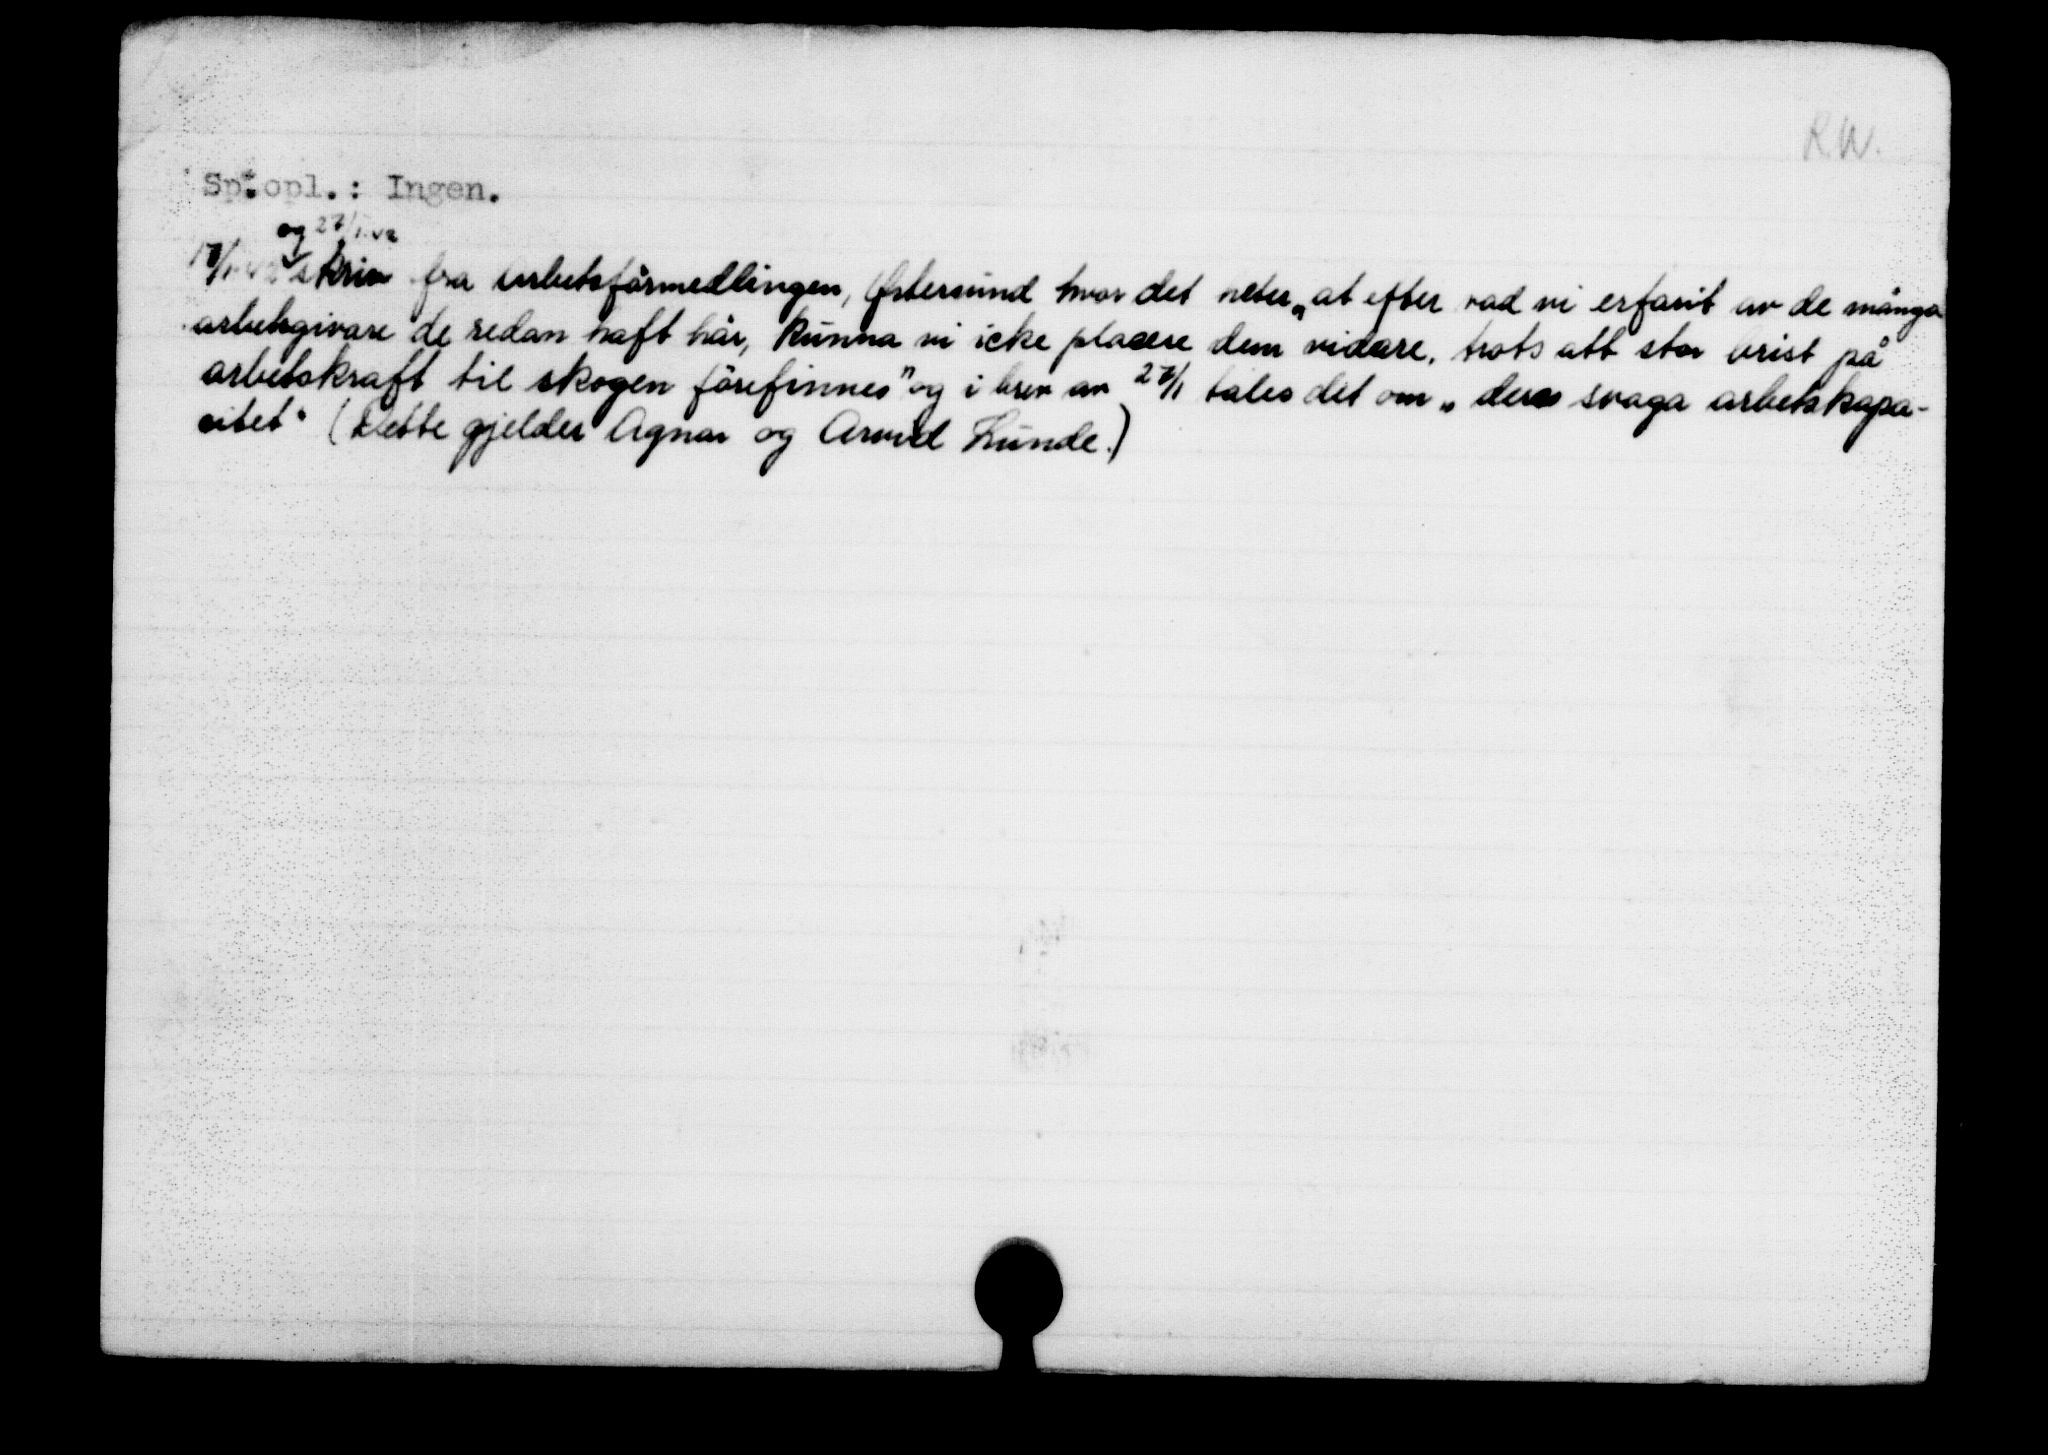 R.W.
Sp.opl.: Ingen.
og 27/1.42
17/1-42 skriv fra Arbetsförmedlingen, Østersund hvor det heter „at efter vad vi erfarit av de många
arbetsgivare de redan haft här, kunna vi icke placere dem vidare, trots att stor brist på
arbetskraft til skogen förefinnes" og i brev av 27/1 tales det om „deres svaga arbetskapa-
citet" (Dette gjelder Agnar og Arvid Lunde.)